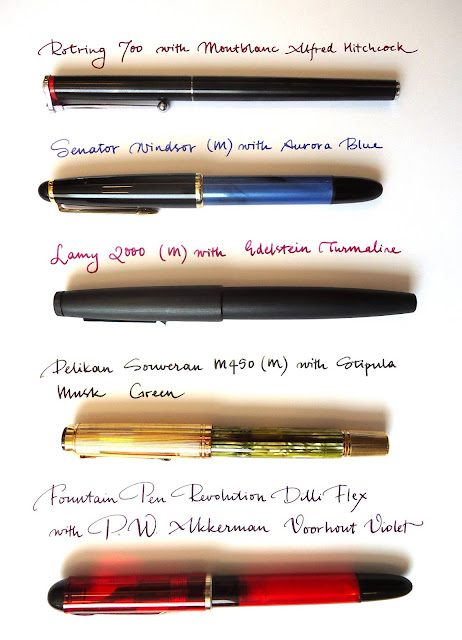 Rotring 700 with Montblanc Alfred Hitchcock
Senator Windsor (M) with Aurora Blue
Lamy 2000 (M) with Edelstein Turmaline
Pelikan Souveran M450 (M) with Stipula
Musk Green
Fountain Pen Revolution Dilli Flex
with P.W. Akkerman Voorhout Violet